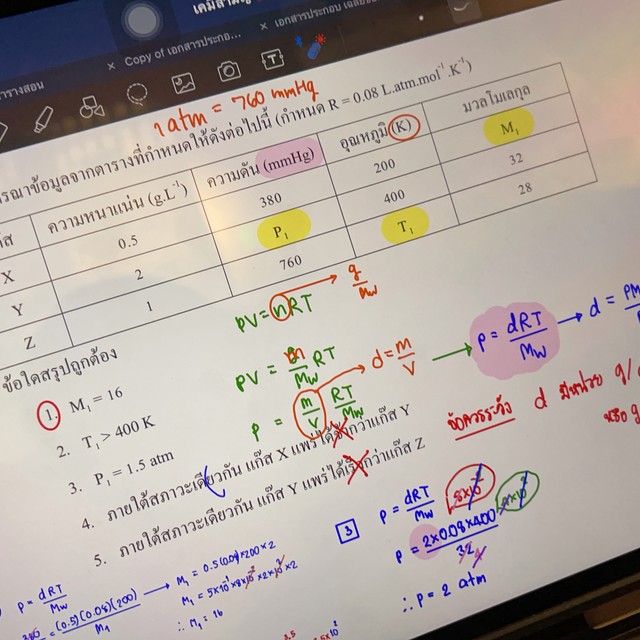 เคมีสามัญ
ตารางสอน
× Copy of เอกสารประกอ...
× เอกสารประกอบ
1 atm = 760 mmHg
รณาข้อมูลจากตารางที่กำหนดให้ดังต่อไปนี้ (กำหนด R = 0.08 L.atm.mol⁻¹ K⁻¹)
ส ความหนาแน่น (g.L⁻¹) ความดัน (mmHg) อุณหภูมิ (K) มวลโมเลกุล
X 0.5 380 200 M₁
Y 2 P₁ 400 32
Z 1 760 T₁ 28
PV = nRT g/Mw
PV = m/Mw RT d = m/V
P = m/V RT/Mw
P = dRT/Mw → d = PM
ข้อใดสรุปถูกต้อง
1. M₁ = 16
2. T₁ > 400 K
3. P₁ = 1.5 atm
4. ภายใต้สภาวะเดียวกัน แก๊ส X แพร่ได้กว่าแก๊ส Y
5. ภายใต้สภาวะเดียวกัน แก๊ส Y แพร่ได้เร็วกว่าแก๊ส Z
ข้อควรระวัง d มีหน่วย g/
หรือ g
3 P = dRT/Mw
P = 2×0.08×400/32
∴ P = 2 atm
P = dRT/Mw
380 = (0.5)(0.08)(200)/M₁
→ M₁ = 0.5(0.08)×200×2
∴ M₁ = 16